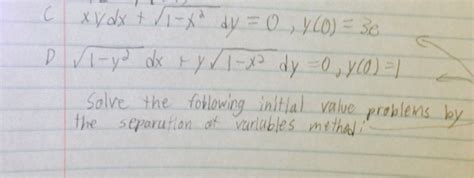 C xydx + √1-x² dy = 0, y(0) = 3e
D √1-y² dx + y√1-x² dy = 0, y(0) = 1
Solve the following initial value problems by
the separation of variables method: